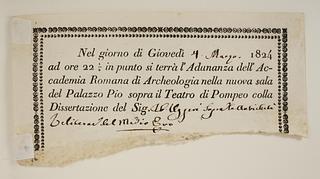 Nel giorno di Giovedì 4 Marzo 1824
ad ore 22 ½ in punto si terrà l'Adunanza dell'Ac-
cademia Romana di Archeologia nella nuova sala
del Palazzo Pio sopra il Teatro di Pompeo colla
Dissertazione del Sig. Ab. Uggeri
del Medio Evo